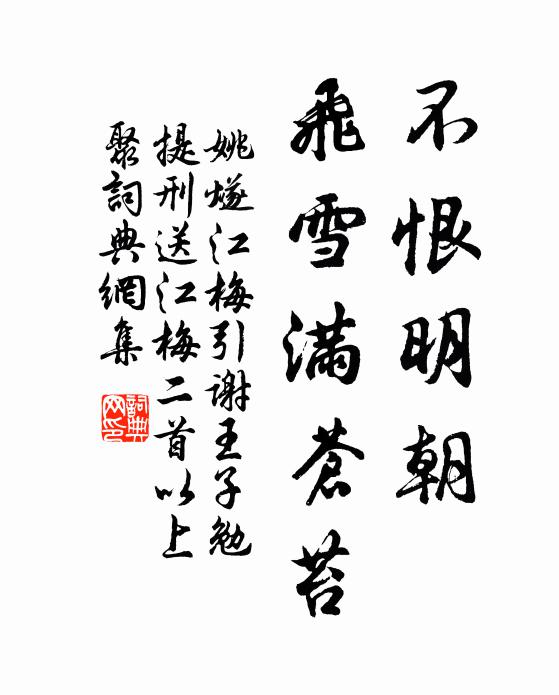 不恨明朝
飛雪满蒼苔
姚燧江梅引謝王子勉
提刑送江梅二首以上
聚詞典網集
詞典
网印